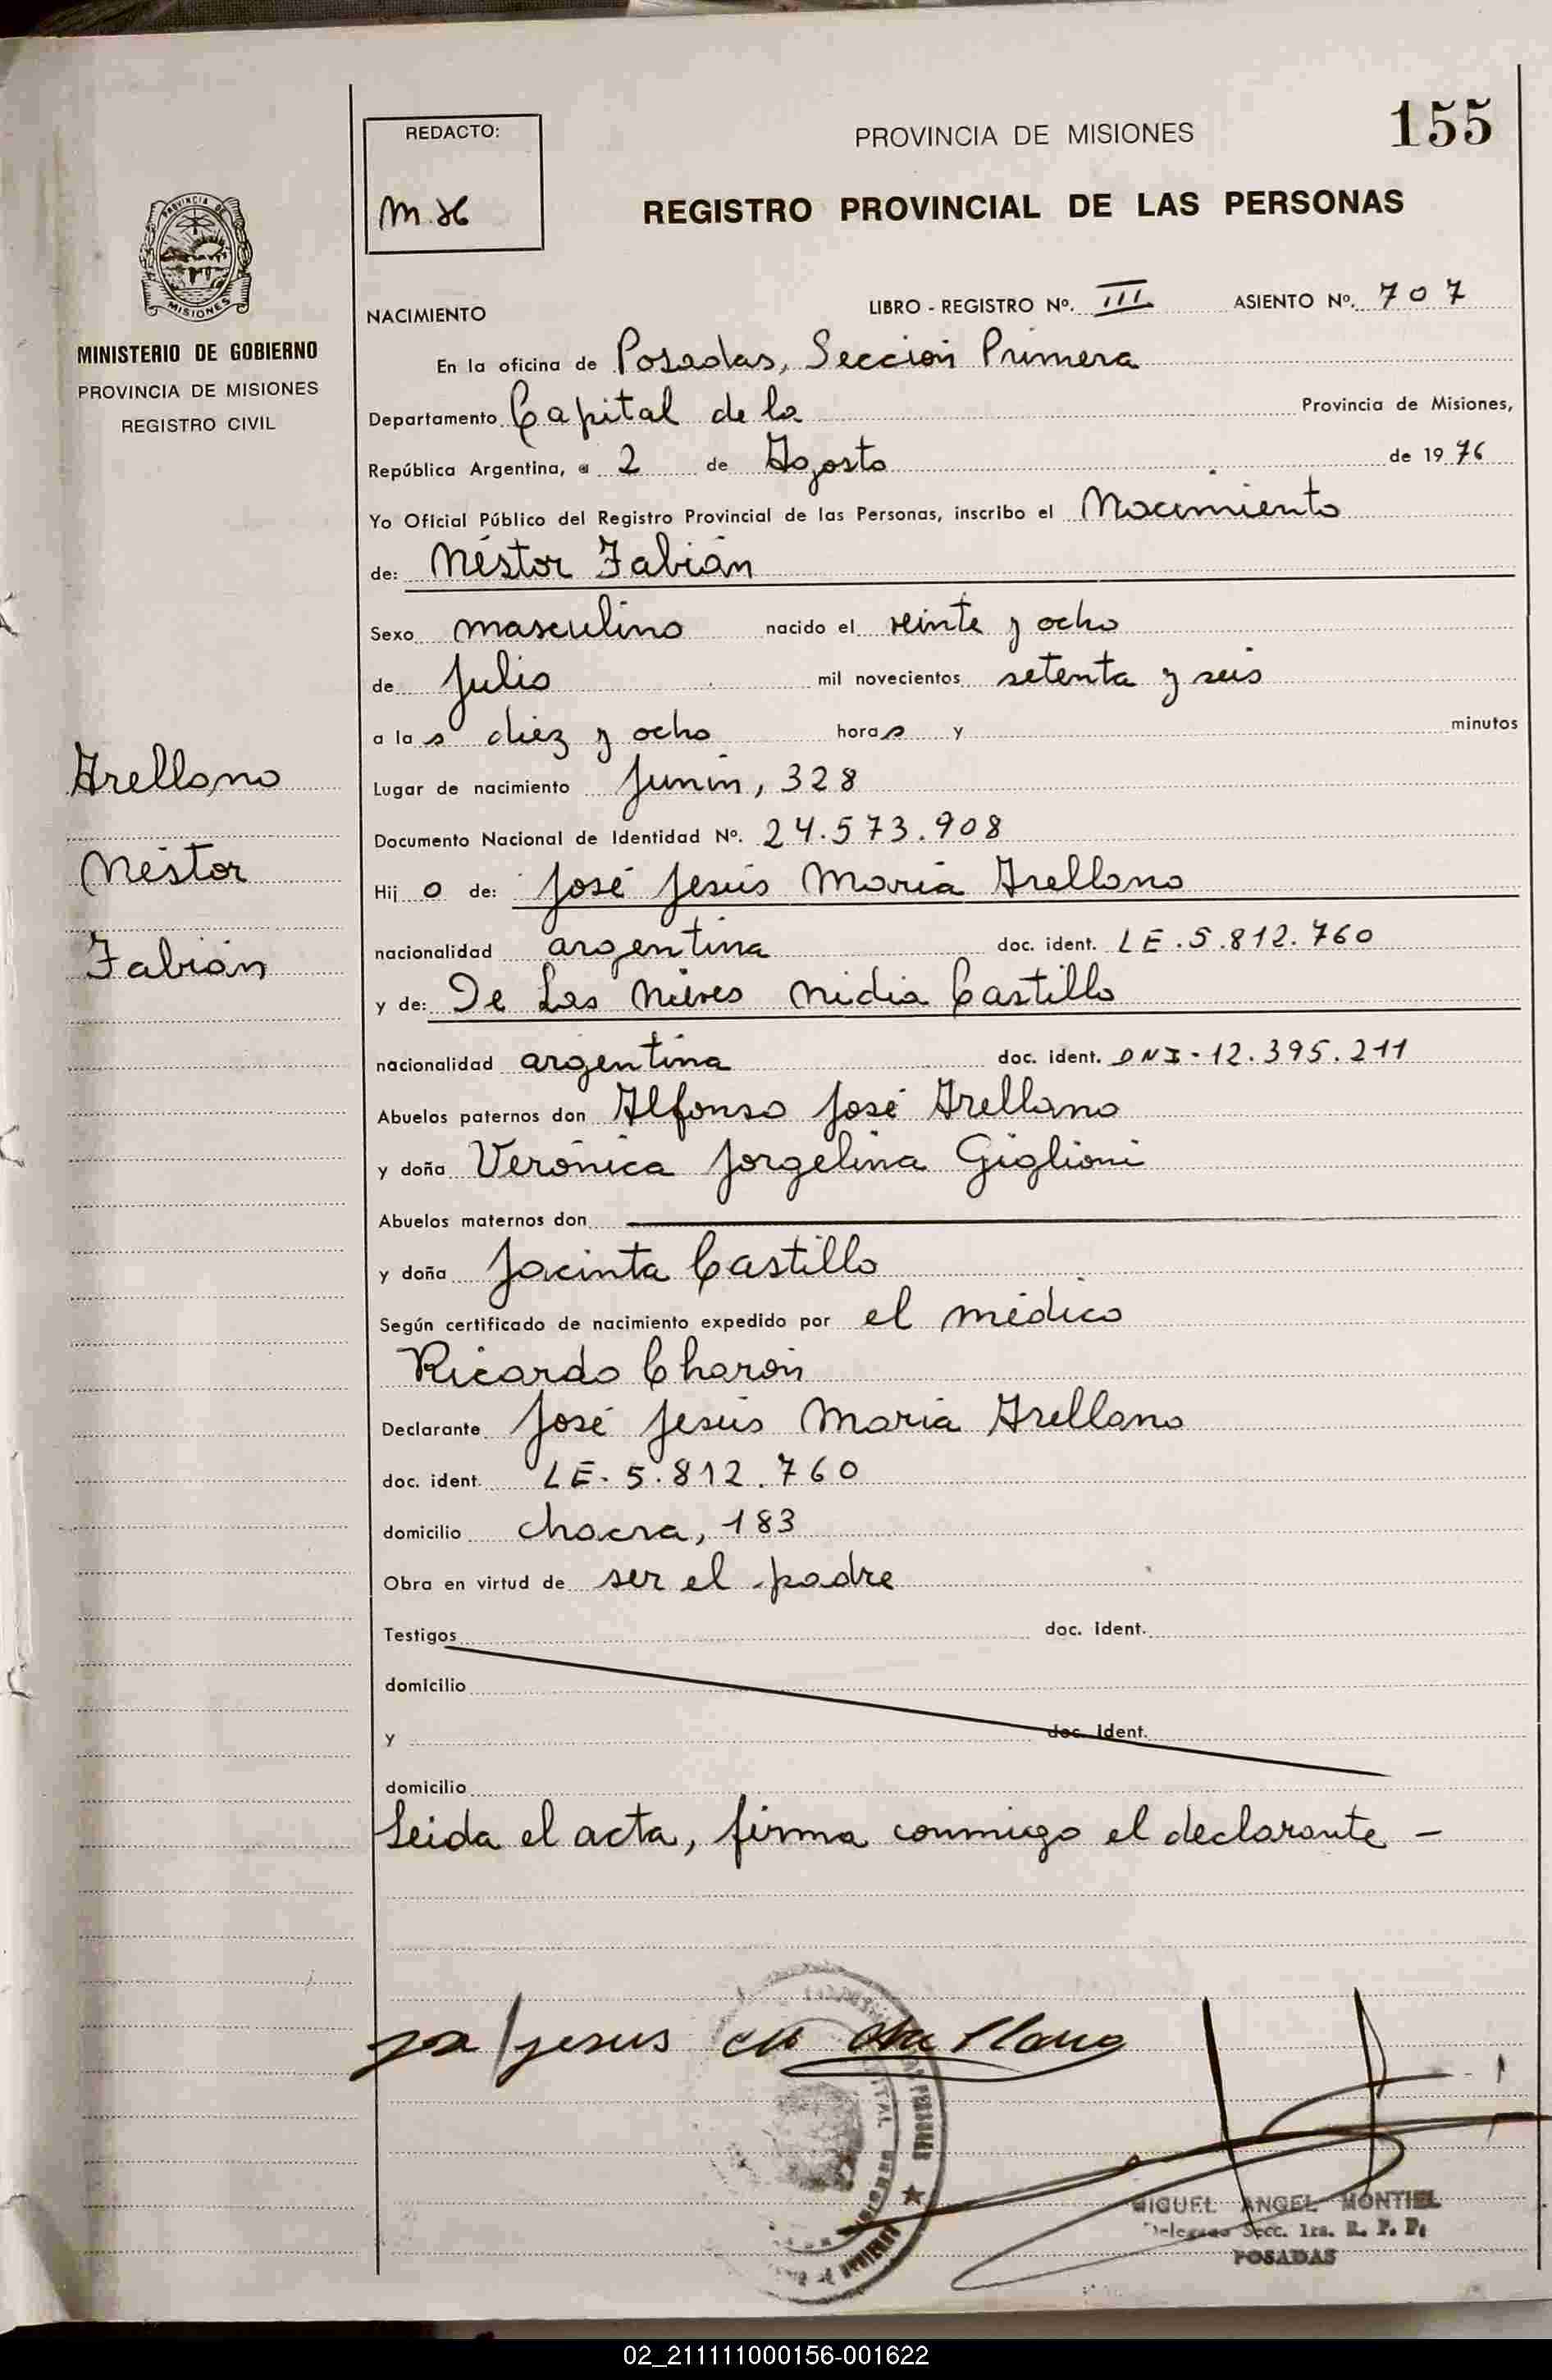 155
REDACTO:
PROVINCIA DE MISIONES
REGISTRO PROVINCIAL DE LAS PERSONAS
PROVINCIA DE
MISIONES
MINISTERIO DE GOBIERNO
PROVINCIA DE MISIONES
REGISTRO CIVIL
NACIMIENTO LIBRO - REGISTRO Nº. III ASIENTO Nº. 707
En la oficina de Posadas, Sección Primera
Departamento Capital de la Provincia de Misiones,
República Argentina, a 2 de Agosto de 1976
Yo Oficial Público del Registro Provincial de las Personas, inscribo el Nacimiento
de: Néstor Fabián
Sexo masculino nacido el veinte y ocho
de Julio mil novecientos setenta y seis
a las diez y ocho horas y minutos
Lugar de nacimiento Junín, 328
Documento Nacional de Identidad Nº. 24.573.908
Hijo de: José Jesús María Arellano
nacionalidad argentina doc. ident. LE.5.812.760
y de: De Las Nieves Nidia Castillo
nacionalidad argentina doc. ident. DNI-12.395.211
Abuelos paternos don Alfonso José Arellano
y doña Verónica Jorgelina Giglioni
Abuelos maternos don
y doña Jacinta Castillo
Según certificado de nacimiento expedido por el médico
Ricardo Charón
Declarante José Jesús María Arellano
doc. ident. LE-5.812.760
domicilio chacra, 183
Obra en virtud de ser el padre
Testigos doc. ident.
domicilio
y doc. ident.
domicilio
Leida el acta, firma conmigo el declarante -
Arellano
Néstor
Fabián
MIGUEL ANGEL MONTIEL
Delegado Secc. 1ra. R. P. P.
POSADAS
02_211111000156-001622